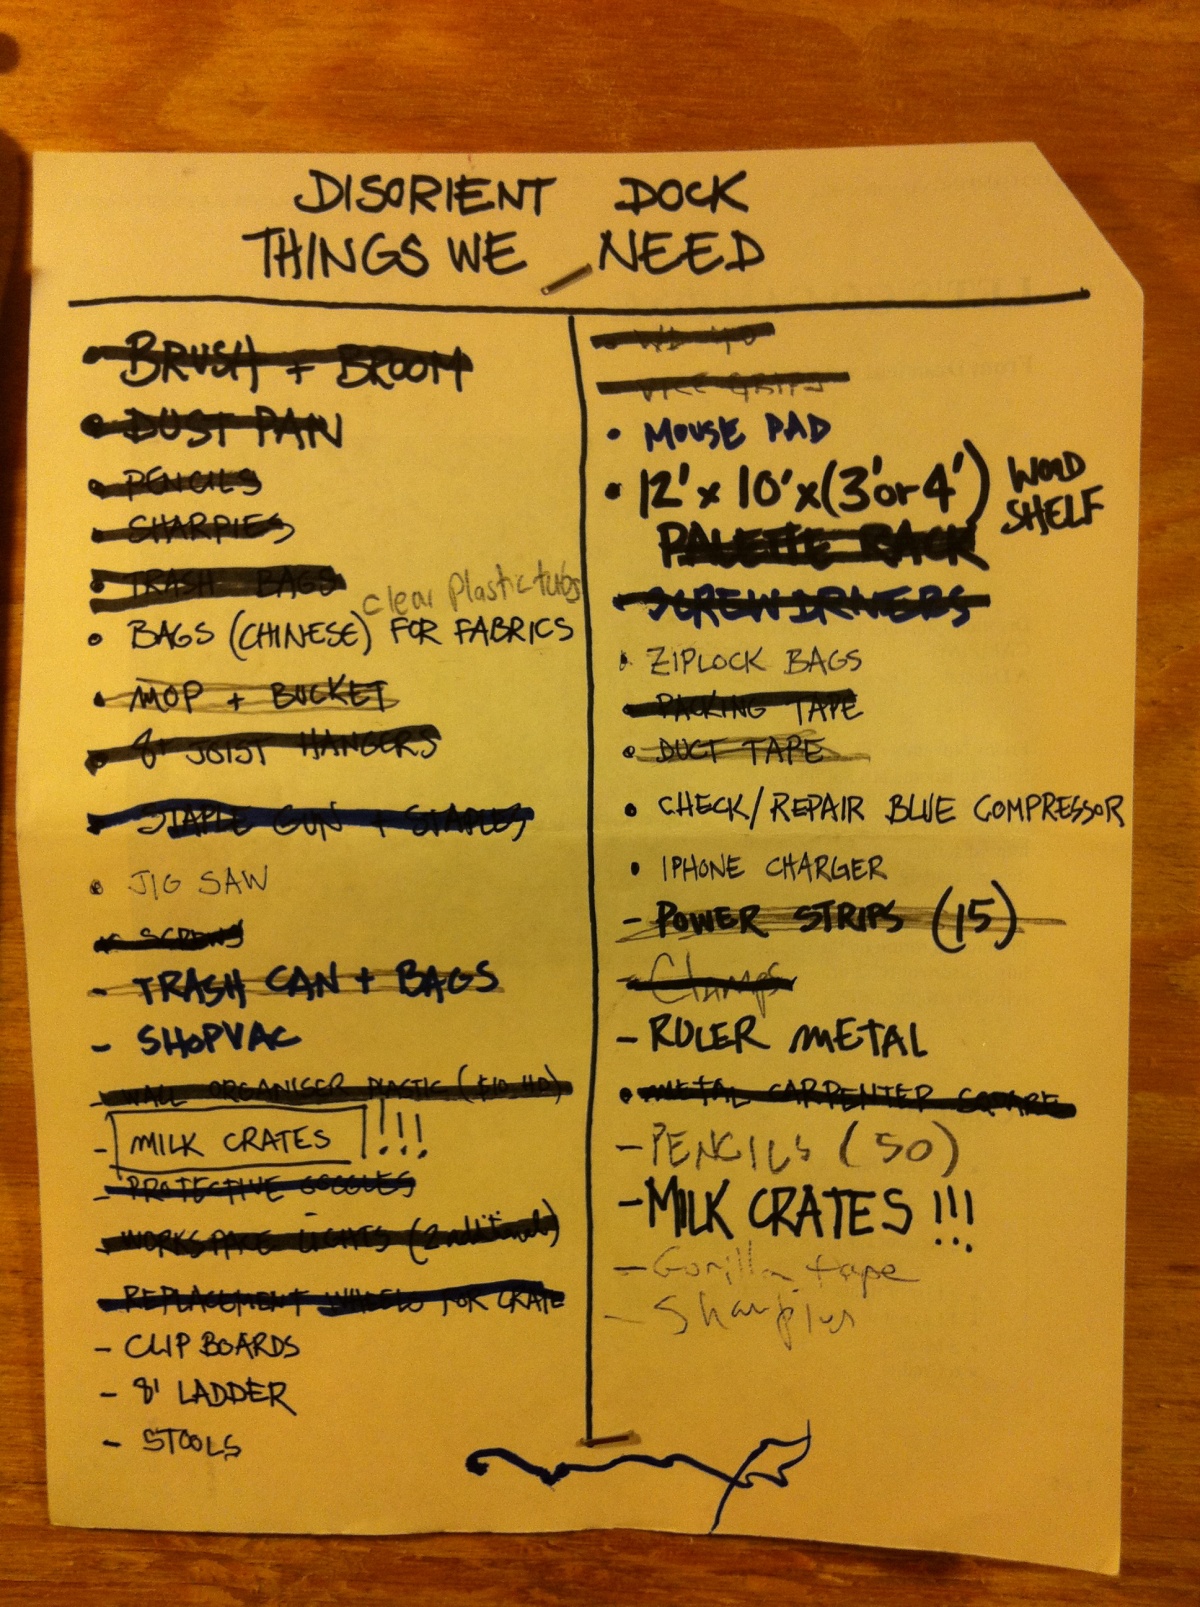 DISORIENT DOCK
THINGS WE NEED
• BRUSH + BROOM
• DUST PAN
• PENCILS
• SHARPIES
• TRASH BAGS
clear Plastic tubs
• BAGS (CHINESE) FOR FABRICS
• MOP + BUCKET
• 8' JOIST HANGERS
• STAPLE GUN + STAPLES
• JIG SAW
• SCREWS
- TRASH CAN + BAGS
- SHOPVAC
- WALL ORGANISER PLASTIC ($10 HD)
- MILK CRATES !!!
- PROTECTIVE GOGGLES
- WORKSPACE LIGHTS (2 additional)
- REPLACEMENT WHEELS FOR CRATE
- CLIP BOARDS
- 8' LADDER
- STOOLS
• WD 40
• VICE GRIPS
• MOUSE PAD
• 12' x 10' x (3' or 4') WOOD SHELF
PALETTE RACK
• SCREWDRIVERS
• ZIPLOCK BAGS
• PACKING TAPE
• DUCT TAPE
• CHECK/REPAIR BLUE COMPRESSOR
• IPHONE CHARGER
- POWER STRIPS (15)
- Clamps
- RULER METAL
• METAL CARPENTER SQUARE
- PENCILS (50)
- MILK CRATES !!!
- Gorilla tape
- Sharpies